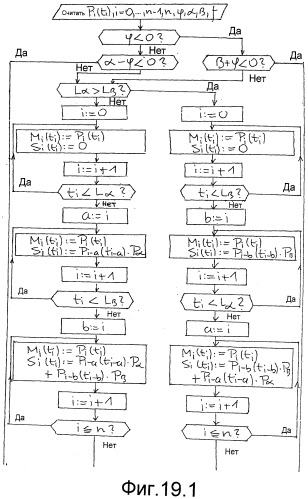 Считать Pi(t), i=0,...,n-1, n, φ, α, β, f
φ<0?
Да
Да
Нет
Да
α-φ<0?
β+φ<0?
Нет
Нет
Lα>Lβ?
Да
Нет
i:=0
i:=0
Mi(ti):=Pi(ti)
Si(ti):=0
Mi(ti):=Pi(ti)
Si(ti):=0
i:=i+1
i:=i+1
Да
ti<Lα?
ti<Lβ?
Да
Нет
Нет
a:=i
b:=i
Mi(ti):=Pi(ti)
Si(ti):=Pi-a(ti-a).Pα
Mi(ti):=Pi(ti)
Si(ti):=Pi-b(ti-b).Pβ
i:=i+1
i:=i+1
Да
ti<Lβ?
ti<Lα?
Да
Нет
Нет
b:=i
a:=i
Mi(ti):=Pi(ti)
Si(ti):=Pi-a(ti-a).Pα
+Pi-b(ti-b).Pβ
Mi(ti):=Pi(ti)
Si(ti):=Pi-b(ti-b).Pβ
+Pi-a(ti-a).Pα
i:=i+1
i:=i+1
Да
i≦n?
i≦n?
Да
Нет
Нет
Фиг.19.1